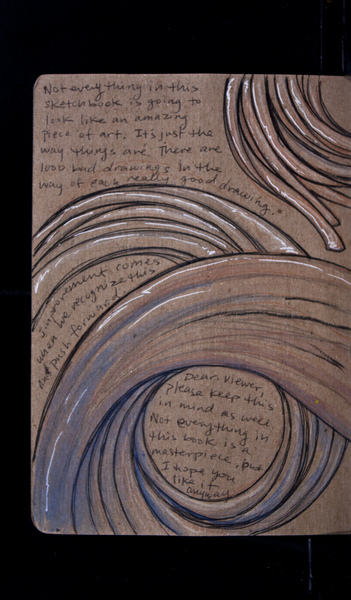 Not everything in this
sketchbook is going to
look like an amazing
piece of art. It's just the
way things are. There are
1000 bad drawings in the
way of each really good drawing.
improvement comes
when we recognize this
and push forward!
Dear Viewer,
please keep this
in mind as well
Not everything in
this book is a
masterpiece, but
I hope you
like it
anyway.